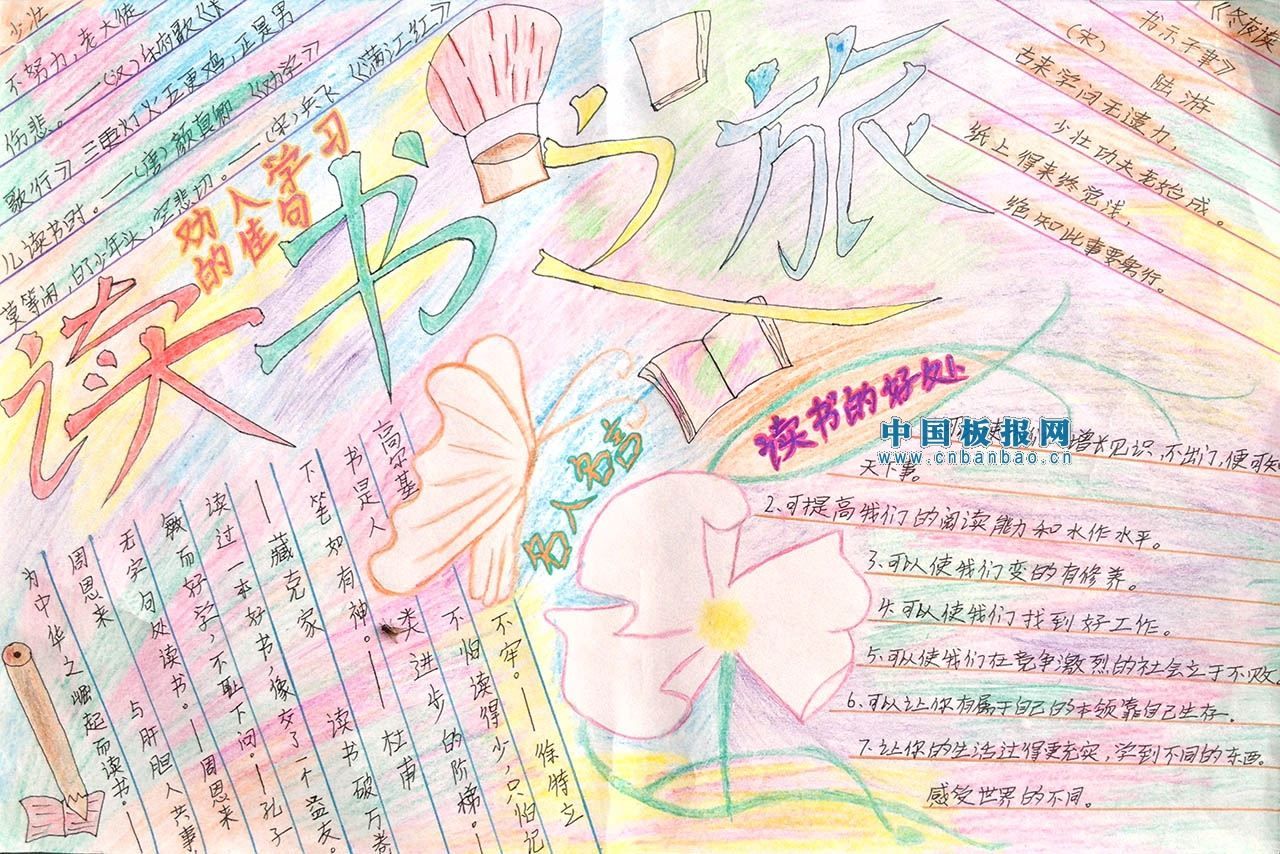 读书之旅
劝人学习
的佳句
少壮
不努力,老大徒
伤悲。——(汉)乐府歌《长
歌行》三更灯火五更鸡,正是男
儿读书时。——(唐)颜真卿《劝学》
莫等闲,白了少年头,空悲切。——(宋)岳飞
《满江红》
《冬夜读
书示子聿》
(宋) 陆游
古来学问无遗力,
少壮功夫老始成。
纸上得来终觉浅,
绝知此事要躬行。
名人名言
不牢。——徐特立
不怕读得少,只怕记
类进步的阶梯。——
高尔基
书是人
下笔如有神。——杜甫
读书破万卷
——臧克家
读过一本好书,像交了一个益友。
敏而好学,不耻下问。——孔子
无字句处读书。——周恩来
周恩来
与肝胆人共事,
为中华之崛起而读书。——
读书的好处
增长见识,不出门,便可知
天下事。
2.可提高我们的阅读能力和水作水平。
3.可以使我们变的有修养。
4.可以使我们找到好工作。
5.可以使我们在竞争激烈的社会立于不败
6.可以让你有属于自己的本领靠自己生存.
7.让你的生活过得更充实,学到不同的东西。
感受世界的不同。
中国板报网
www.cnbanbao.cn